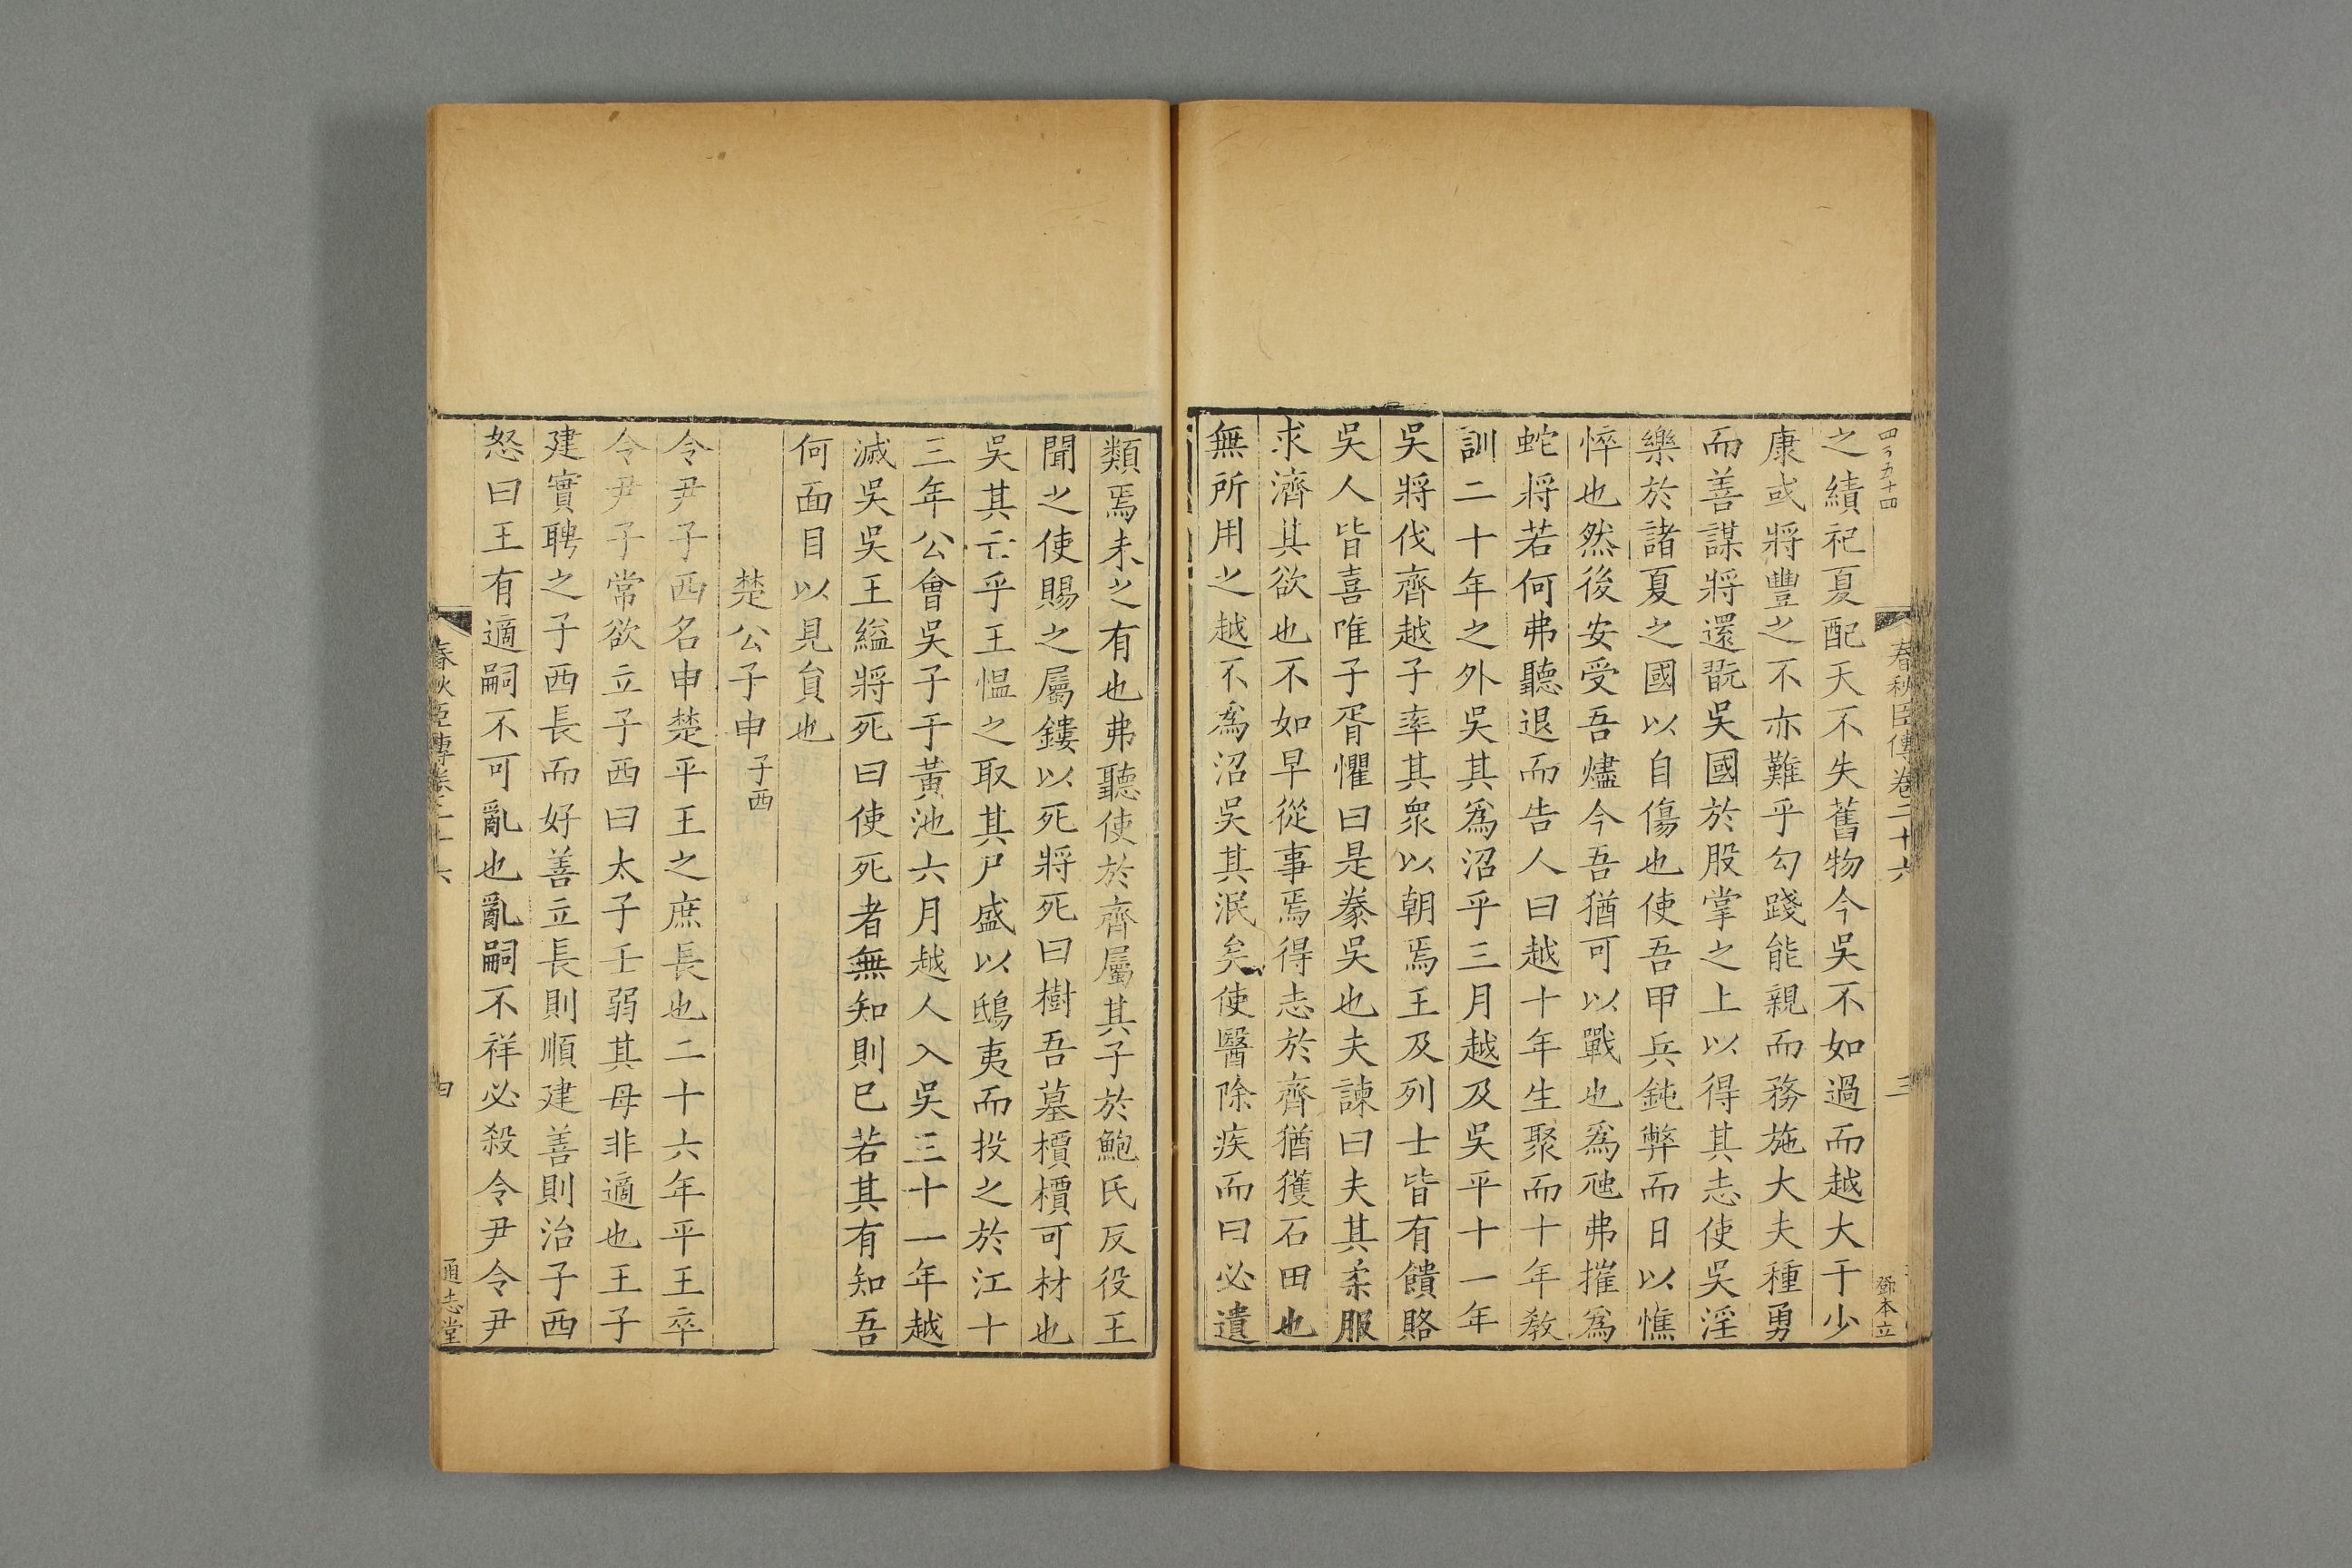 四百五十四
春秋臣傳卷二十六
三
鄧本立
之績祀夏配天不失舊物今吳不如過而越大于少
康或將豐之不亦難乎勾踐能親而務施大夫種勇
而善謀將還翫吳國於股掌之上以得其志使吳淫
樂於諸夏之國以自傷也使吾甲兵鈍弊而日以憔
悴也然後安受吾燼今吾猶可以戰也為虺弗摧為
蛇將若何弗聽退而告人曰越十年生聚而十年教
訓二十年之外吳其為沼乎三月越及吳平十一年
吳將伐齊越子率其衆以朝焉王及列士皆有饋賂
吳人皆喜唯子胥懼曰是豢吳也夫諫曰夫其柔服
求濟其欲也不如早從事焉得志於齊猶獲石田也
無所用之越不為沼吳其泯矣使醫除疾而曰必遺
類焉未之有也弗聽使於齊屬其子於鮑氏反役王
聞之使賜之屬鏤以死將死曰樹吾墓檟檟可材也
吳其亡乎王愠之取其尸盛以鴟夷而投之於江十
三年公會吳子于黃池六月越人入吳三十一年越
滅吳吳王縊將死曰使死者無知則已若其有知吾
何面目以見貟也
楚公子申子西
令尹子西名申楚平王之庶長也二十六年平王卒
令尹子常欲立子西曰太子壬弱其母非適也王子
建實聘之子西長而好善立長則順建善則治子西
怒曰王有適嗣不可亂也亂嗣不祥必殺令尹令尹
春秋臣傳卷二十六
四
通志堂